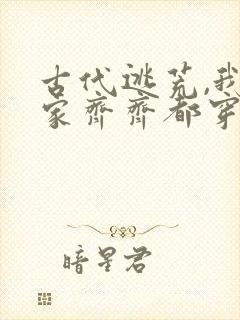 古代逃荒,我
家齐齐都穿
暗星君